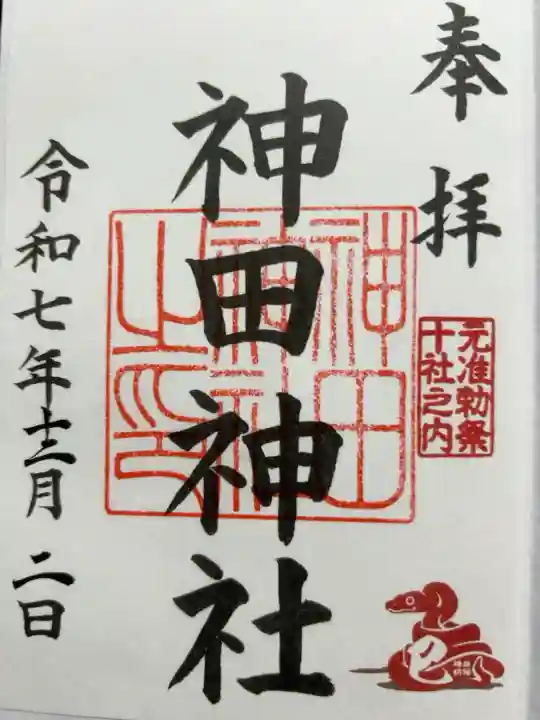 奉拝
元准勅祭
十社之内
神田神社
神田神社之印
巳
令和七年十二月二日